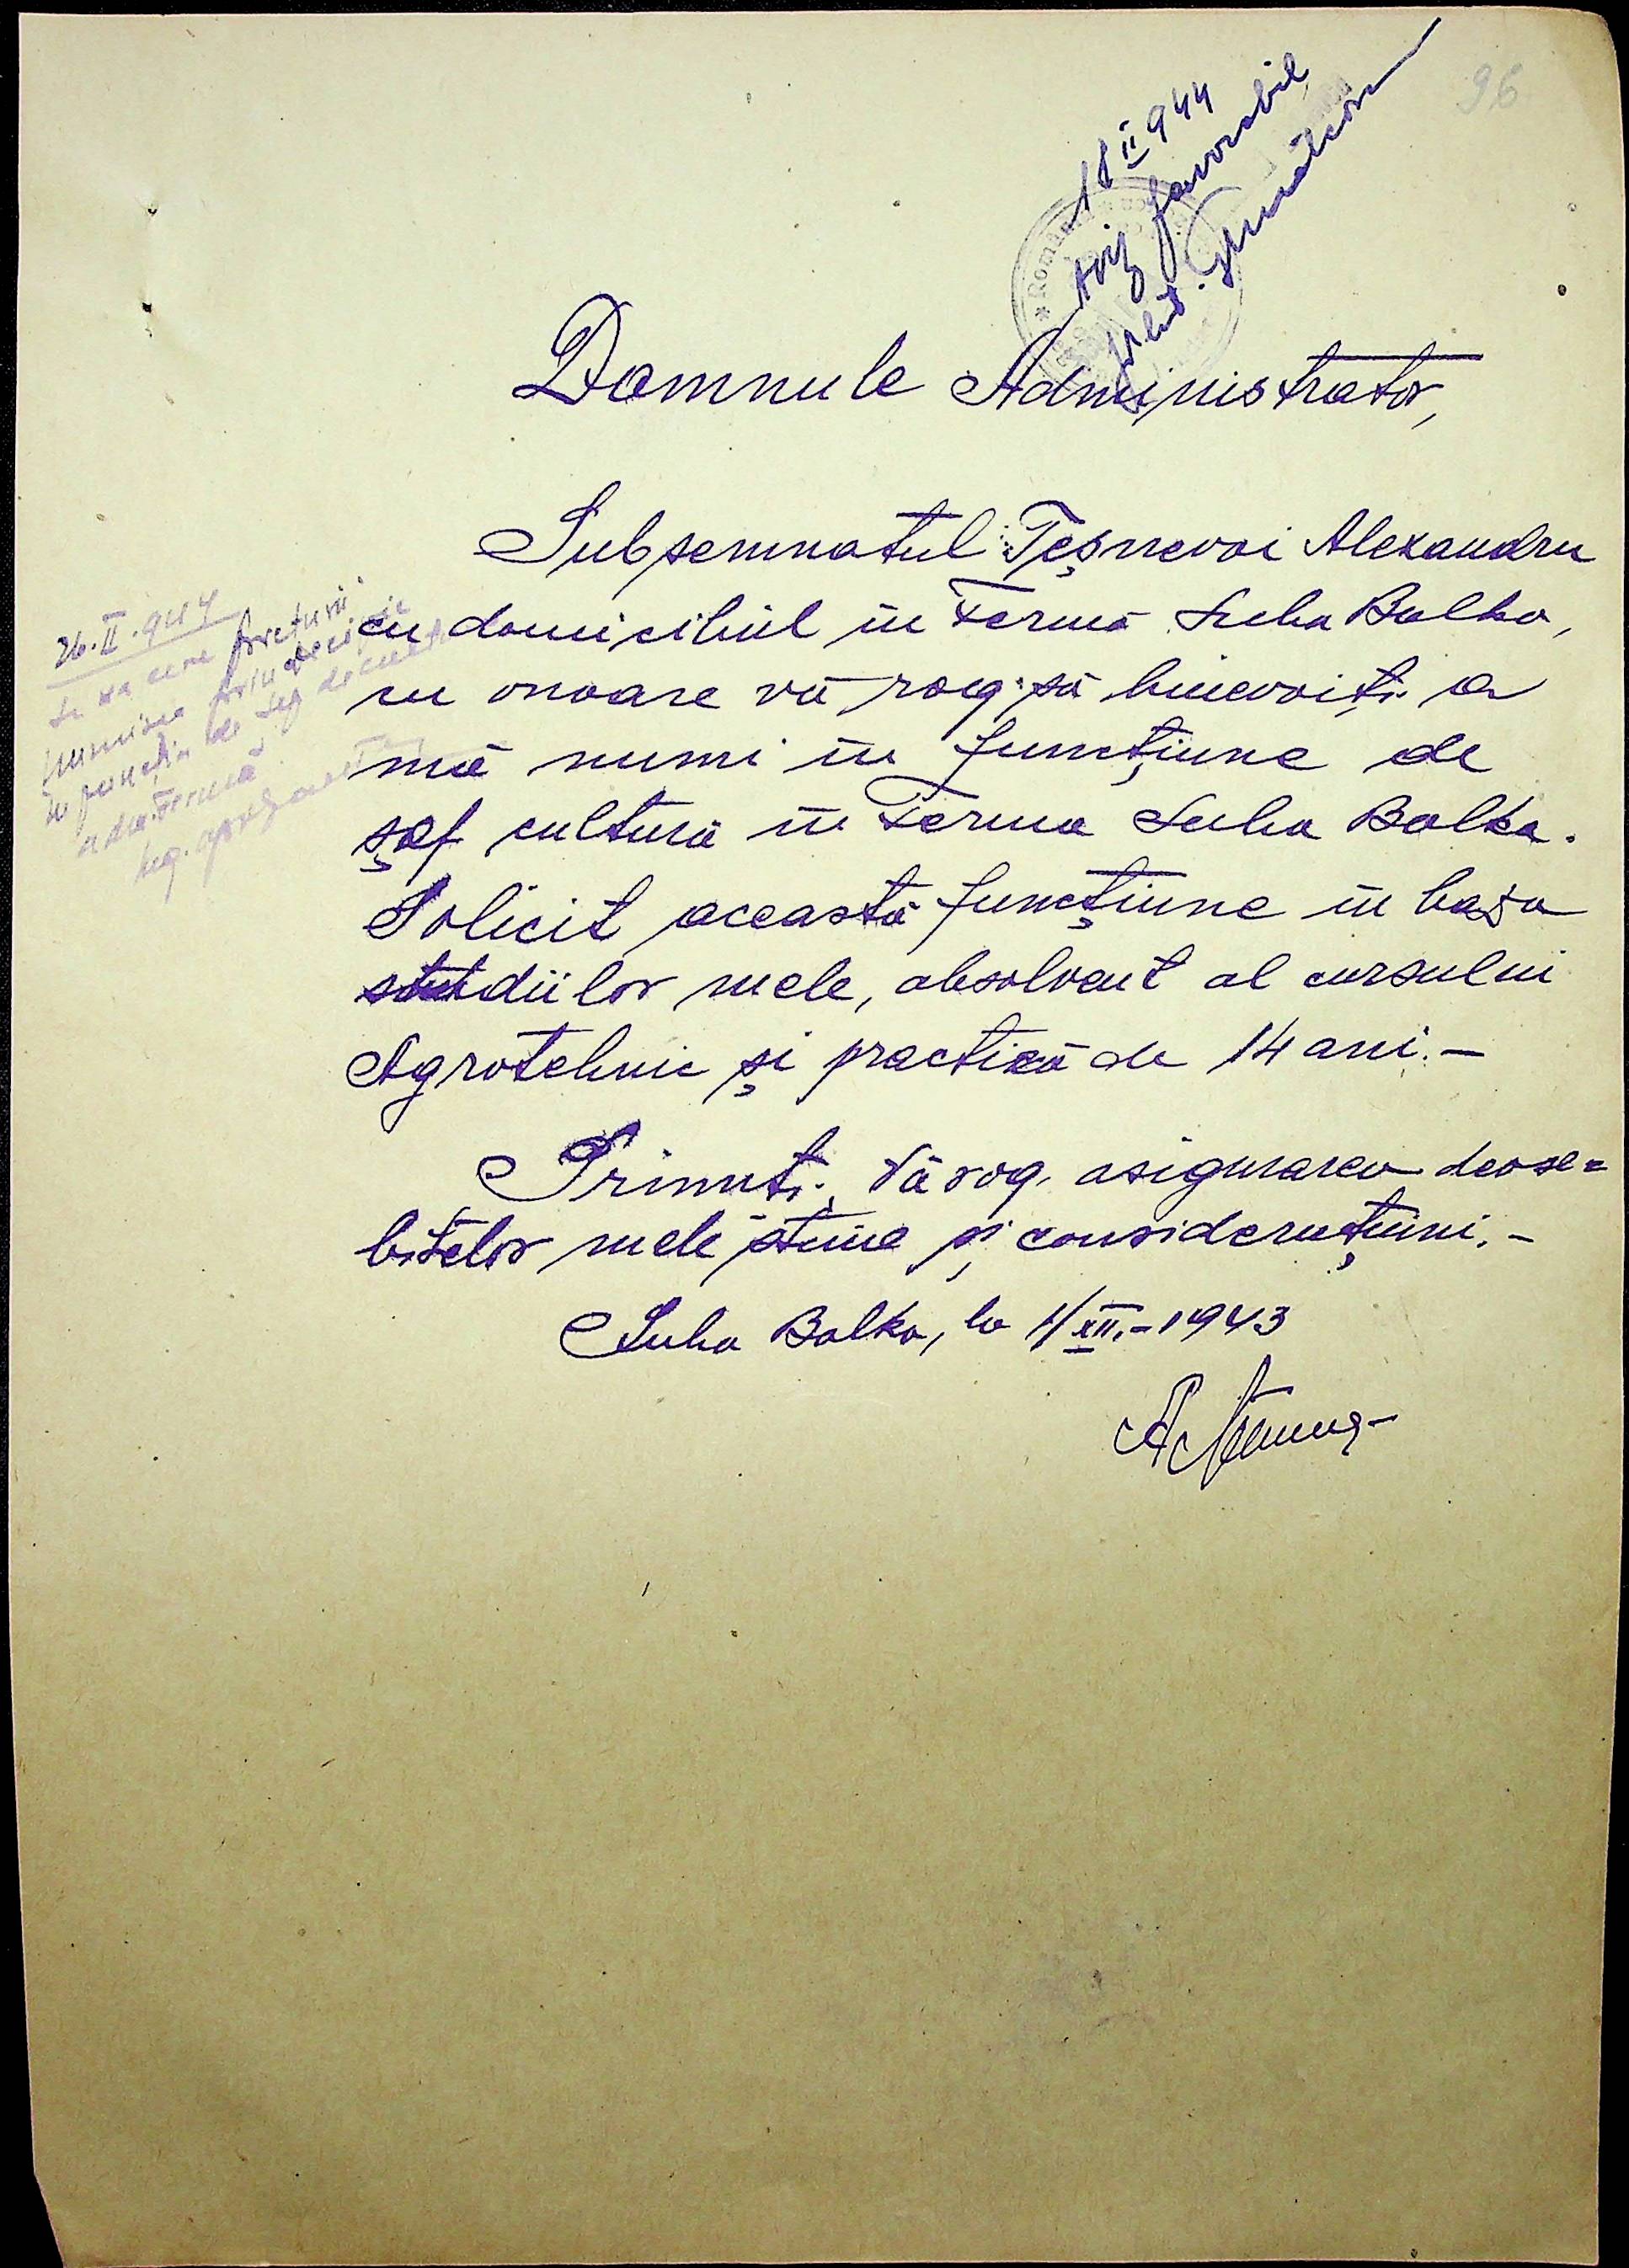 96
18 II 944
Aviz favorabil
Domnule Administrator,
Subsemnatul Teșnevoi Alexandru
cu domiciliul in Ferma Suha Balka,
cu onoare vă rog să binevoiți a
mă numi in funcțiune de
șef cultură in Ferma Suha Balka.
Solicit această funcțiune in baza
studiilor mele, absolvent al cursului
Agrotehnic și practică de 14 ani.-
Primiți, Vă rog, asigurarea deose=
bitelor mele stime și considerațiuni.-
Suha Balka, la 1/XII.-1943
26.II.944
Se va cere preturii
numirea prin decizie
in funcția de șef de cultură
a dlui Fermă